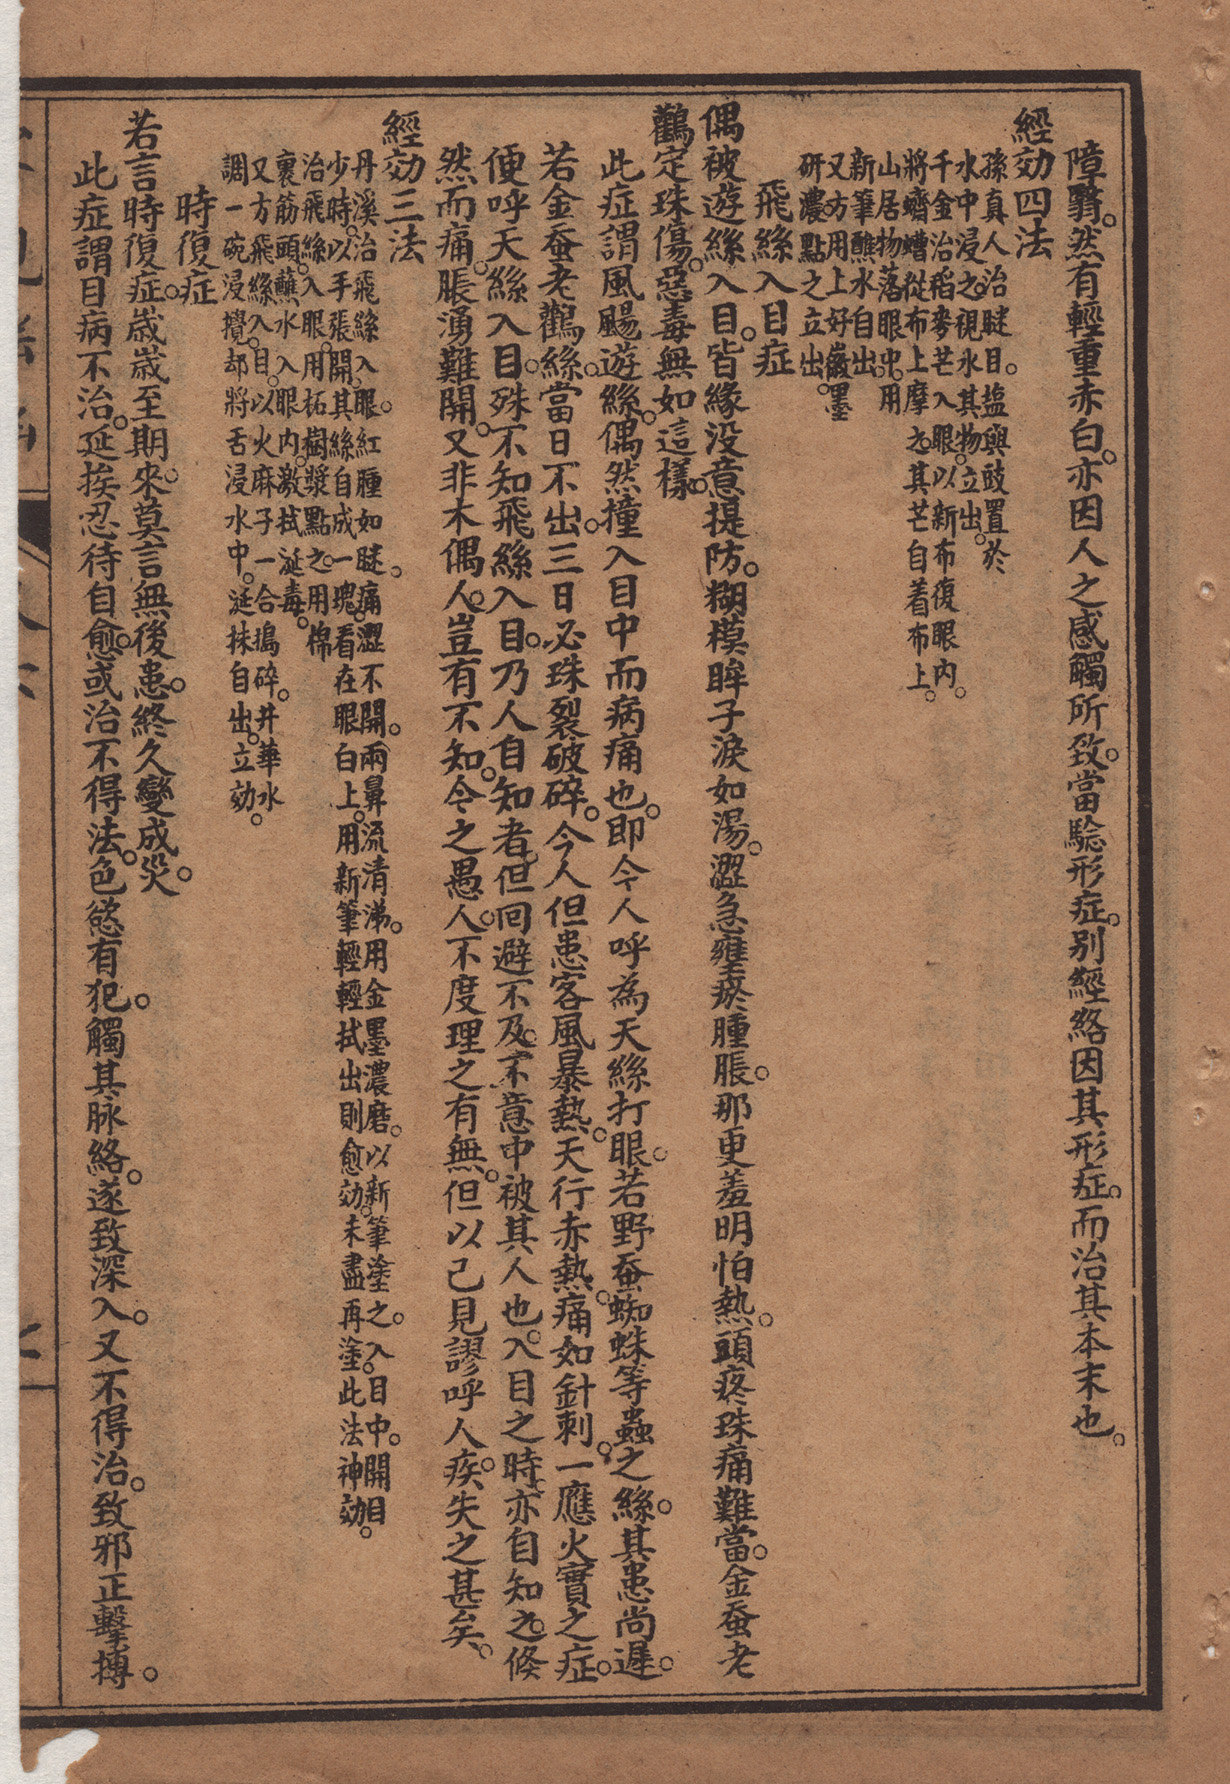 障翳。然有輕重赤白。亦因人之感觸所致。當驗形症。別經絡因其形症。而治其本末也。
經効四法
孫真人治瞇目。塩與豉置於
水中浸之。視水其物立出。
千金治稻麥芒入眼。以新布復眼內。
將蠐螬從布上摩之。其芒自着布上。
山居物落眼中。用
新筆蘸水自出。
又方用上好徽墨
研濃點之立出。
飛絲入目症
偶被遊絲入目。皆緣没意提防。糊模眸子淚如湯。澀急壅瘀腫脹。那更羞明怕熱。頭疼珠痛難當。金蚕老
鸛定珠傷。惡毒無如這樣。
此症謂風颺遊絲。偶然撞入目中而病痛也。即今人呼為天絲打眼。若野蚕蜘蛛等蟲之絲。其患尚遲。
若金蚕老鸛絲。當日不出。三日必珠裂破碎。今人但患客風暴熱。天行赤熱。痛如針刺。一應火實之症。
便呼天絲入目。殊不知飛絲入目。乃人自知者。但回避不及。不意中被其人也。入目之時。亦自知之。倏
然而痛。脹湧難開。又非木偶人。豈有不知。今之愚人。不度理之有無。但以己見謬呼人疾。失之甚矣。
經効三法
丹溪治飛絲入眼。紅腫如瞇。痛澀不開。兩鼻流清涕。用金墨濃磨。以新筆塗之。入目中。開目。
少時。以手張開。其絲自成一塊。看在眼白上。用新筆輕輕拭出則愈効。未盡再塗。此法神効。
治飛絲。入眼。用柘樹漿點之。用棉
裹筋頭。蘸水入眼內。激拭涎毒。
又方飛絲入目。以火麻子一合搗碎。井華水
調一碗浸攪。却將舌浸水中。涎抹自出。立効。
時復症
若言時復症。歲歲至期來。莫言無後患。終久變成災。
此症謂目病不治。延挨忍待自愈。或治不得法。色慾有犯。觸其脉絡。遂致深入。又不得治。致邪正擊摶。